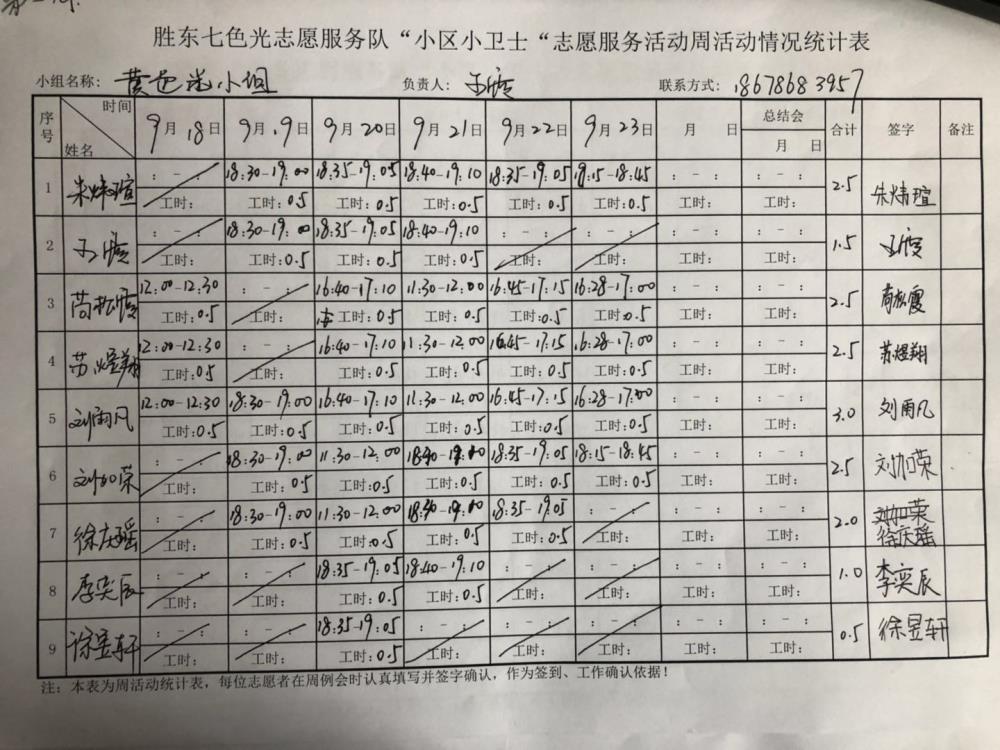 胜东七色光志愿服务队“小区小卫士“志愿服务活动周活动情况统计表
小组名称：黄色光小组 负责人：王愷 联系方式：18678683957
序号 时间 姓名 9月18日 9月19日 9月20日 9月21日 9月22日 9月23日 月 日 总结会 月 日 合计 签字 备注
1 朱炜瑄 : - : 18:30-19:00 18:35-19:05 18:40-19:10 18:35-19:05 18:15-18:45 : - : : - : 2.5 朱炜瑄
工时： 工时：0.5 工时：0.5 工时：0.5 工时：0.5 工时：0.5 工时： 工时：
2 : - : 18:30-19:00 18:35-19:05 18:40-19:10 : - : : - : : - : : - : 1.5
工时： 工时：0.5 工时：0.5 工时：0.5 工时： 工时： 工时： 工时：
3 12:00-12:30 : - : 16:40-17:10 11:30-12:00 16:45-17:15 16:28-17:00 : - : : - : 2.5
工时：0.5 工时： 工时：0.5 工时：0.5 工时：0.5 工时：0.5 工时： 工时：
4 苏煜翔 12:00-12:30 : - : 16:40-17:10 11:30-12:00 16:45-17:15 16:28-17:00 : - : : - : 2.5 苏煜翔
工时：0.5 工时： 工时：0.5 工时：0.5 工时：0.5 工时：0.5 工时： 工时：
5 刘雨凡 12:00-12:30 18:30-19:00 16:40-17:10 11:30-12:00 16:45-17:15 16:28-17:00 : - : : - : 3.0 刘雨凡
工时：0.5 工时：0.5 工时：0.5 工时：0.5 工时：0.5 工时：0.5 工时： 工时：
6 刘加荣 : - : 18:30-19:00 11:30-12:00 18:35-19:05 18:15-18:45 : - : : - : 2.5 刘加荣
工时： 工时：0.5 工时：0.5 工时：0.5 工时：0.5 工时：0.5 工时： 工时：
7 徐庆瑶 : - : 18:30-19:00 11:30-12:00 18:35-19:05 : - : : - : : - : 2.0 刘加荣 徐庆瑶
工时： 工时：0.5 工时：0.5 工时：0.5 工时：0.5 工时： 工时： 工时：
8 李奕辰 : - : : - : 18:35-19:05 18:40-19:10 : - : : - : : - : : - : 1.0 李奕辰
工时： 工时： 工时：0.5 工时：0.5 工时： 工时： 工时： 工时：
9 徐昱轩 : - : : - : 18:35-19:05 : - : : - : : - : : - : : - : 0.5 徐昱轩
工时： 工时： 工时：0.5 工时： 工时： 工时： 工时： 工时：
注：本表为周活动统计表，每位志愿者在周例会时认真填写并签字确认，作为签到、工作确认依据！